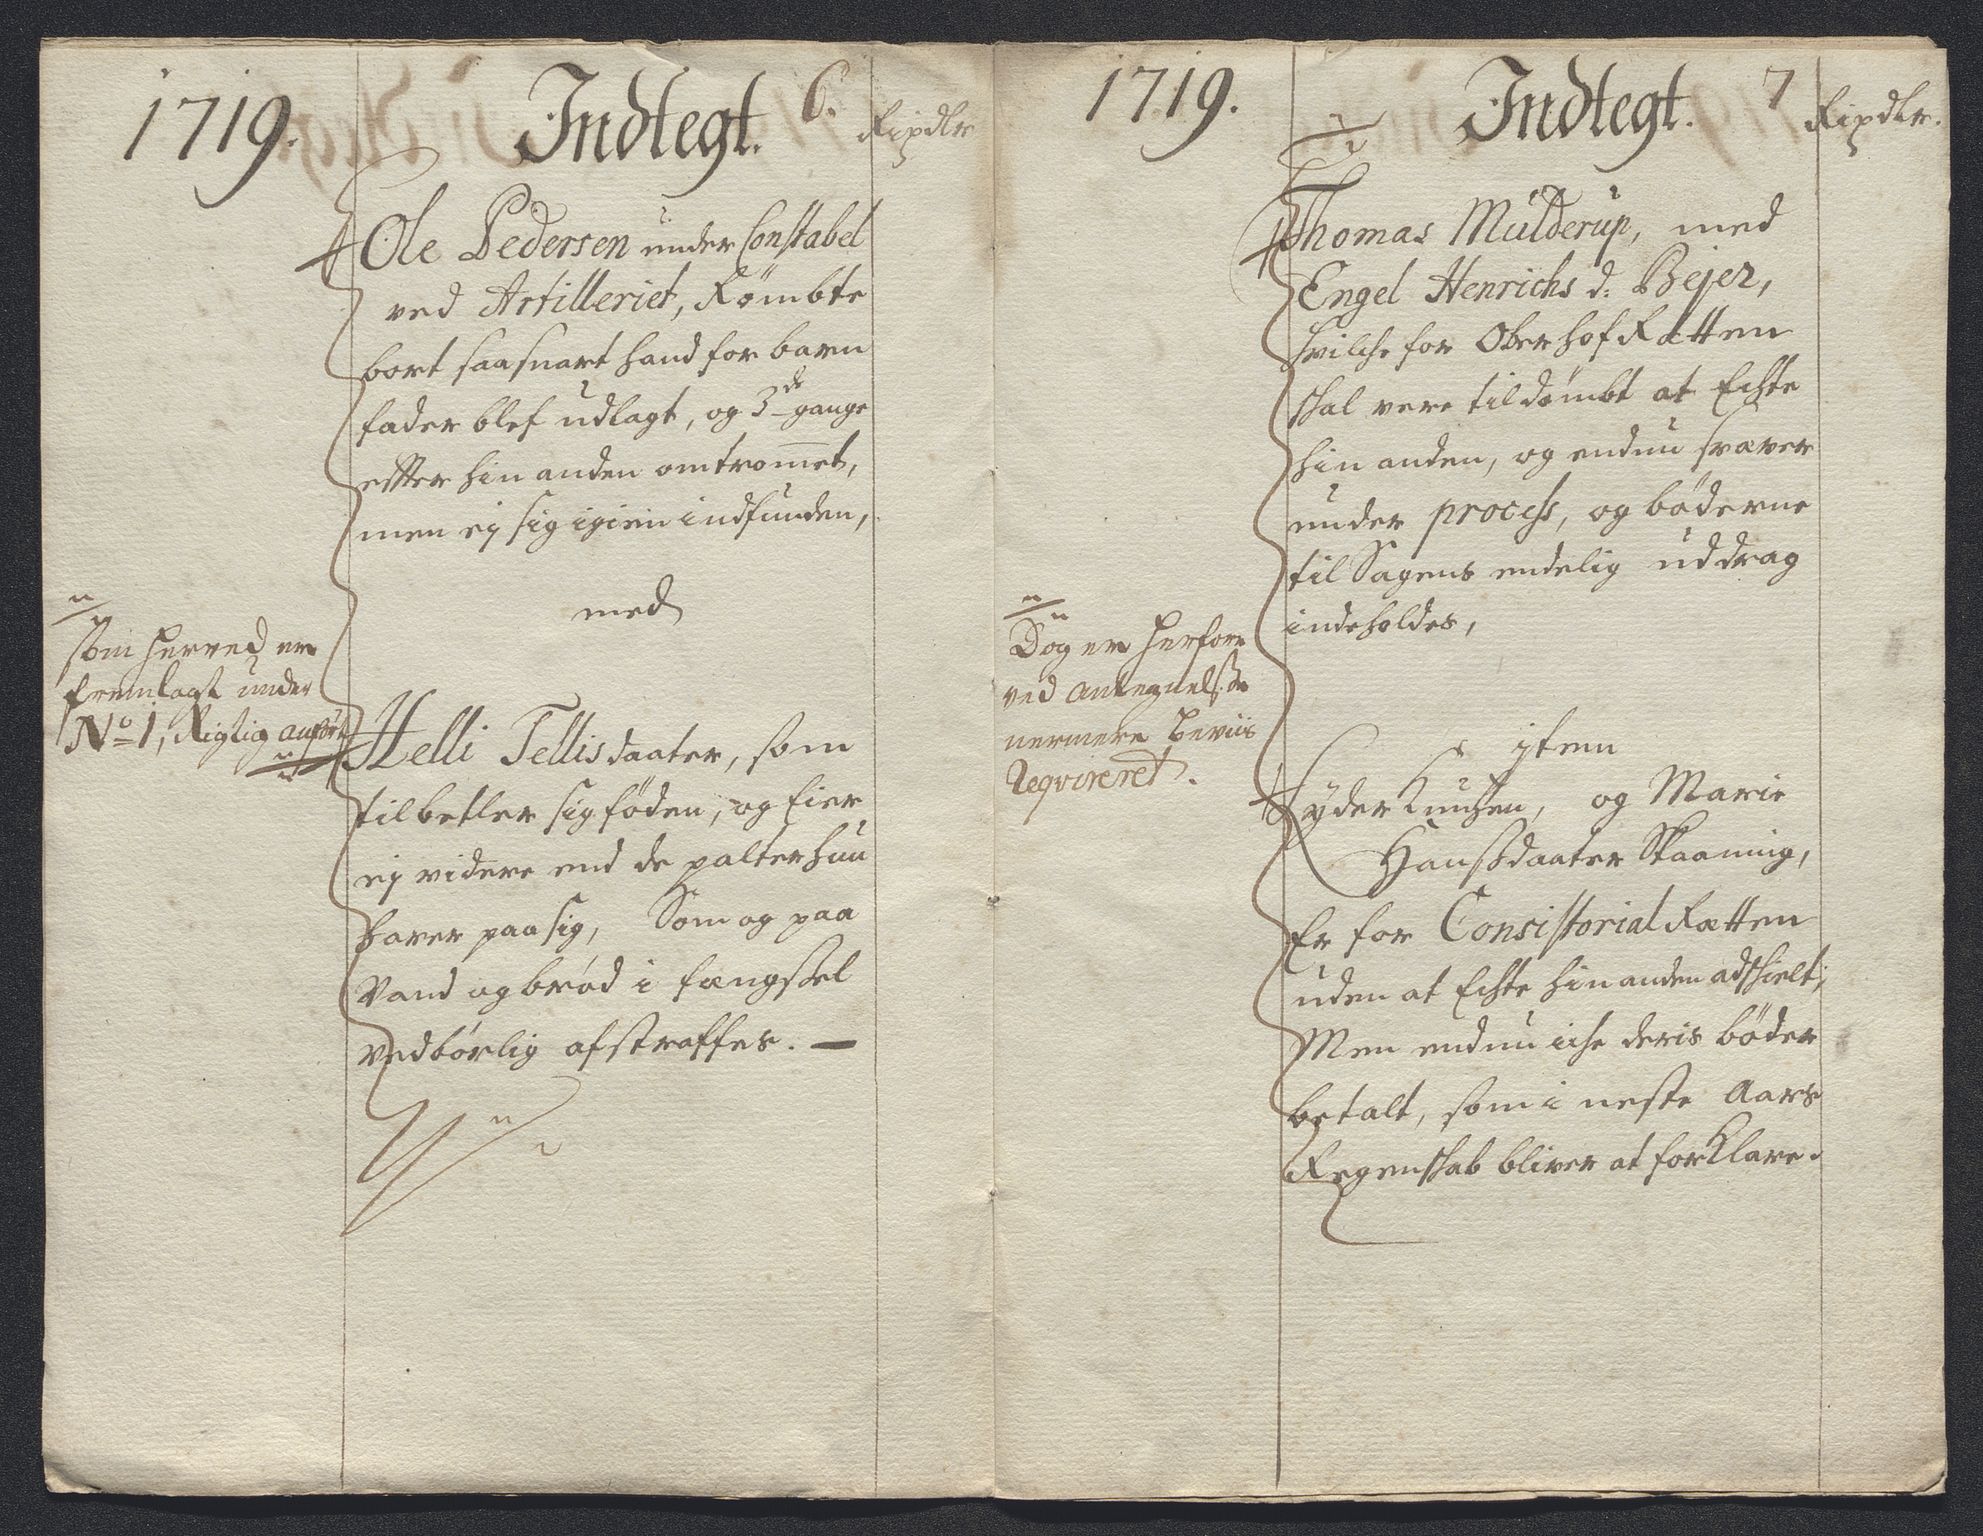 1719.
Indtegt.
6.
Rixdlr
Ole Pedersen under Constabel
ved Artilleriet, Rømbte
bort saasnart hand for barn
fader blef udlagt, og 3de gange
effter hin anden omtrommet,
men ej sig igien indfunden,
med
som herved er
fremlagt under
No 1, Rigtig anført
Helli Tellisdaater, som
tilbetler sig føden, og Eier
ej videre end de palter hun
haver paa sig, Som og paa
Vand og brød i fængssel
vedbørlig afstraffes. —
1719.
Indtegt.
7
Rixdlr.
Thomas Mulderup, med
Engel Henrichs d: Bejer,
hvilche for Oberhof Rætten
skal vere tildømbt at Echte
hin anden, og endnu svæver
under process, og bøderne
til Sagens endelig uddrag
indeholdes,
Dog er herfore
ved Antegnelsse
nermere beviis
Reqvireret.
item
Lyder Knutzen, og Marie
Hanssdaater Skaaning,
Er for Consistorial Rætten
uden at Echte hin anden adskielt;
Men endnu iche deris bøder
betalt, som i neste Aars
Regenskab bliver at forklare.